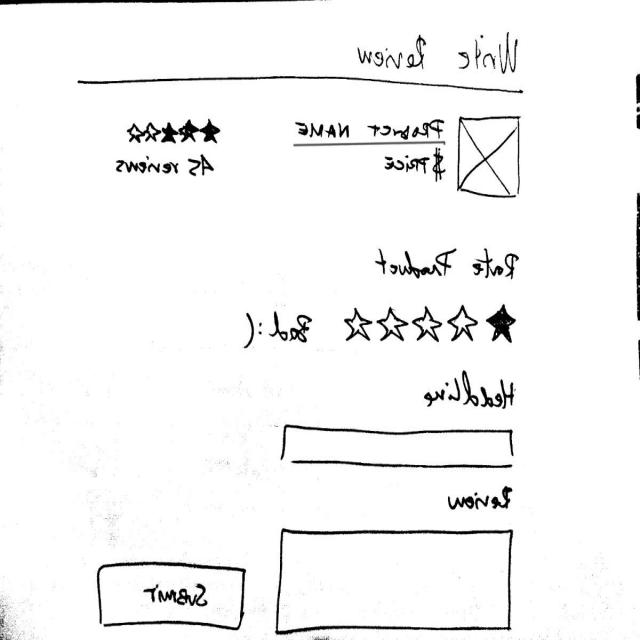 Write Review
PRODUCT NAME ★★★☆☆
$PRICE 45 reviews
Rate Product
★☆☆☆☆ Bad :(
Headline
Review
SUBMIT